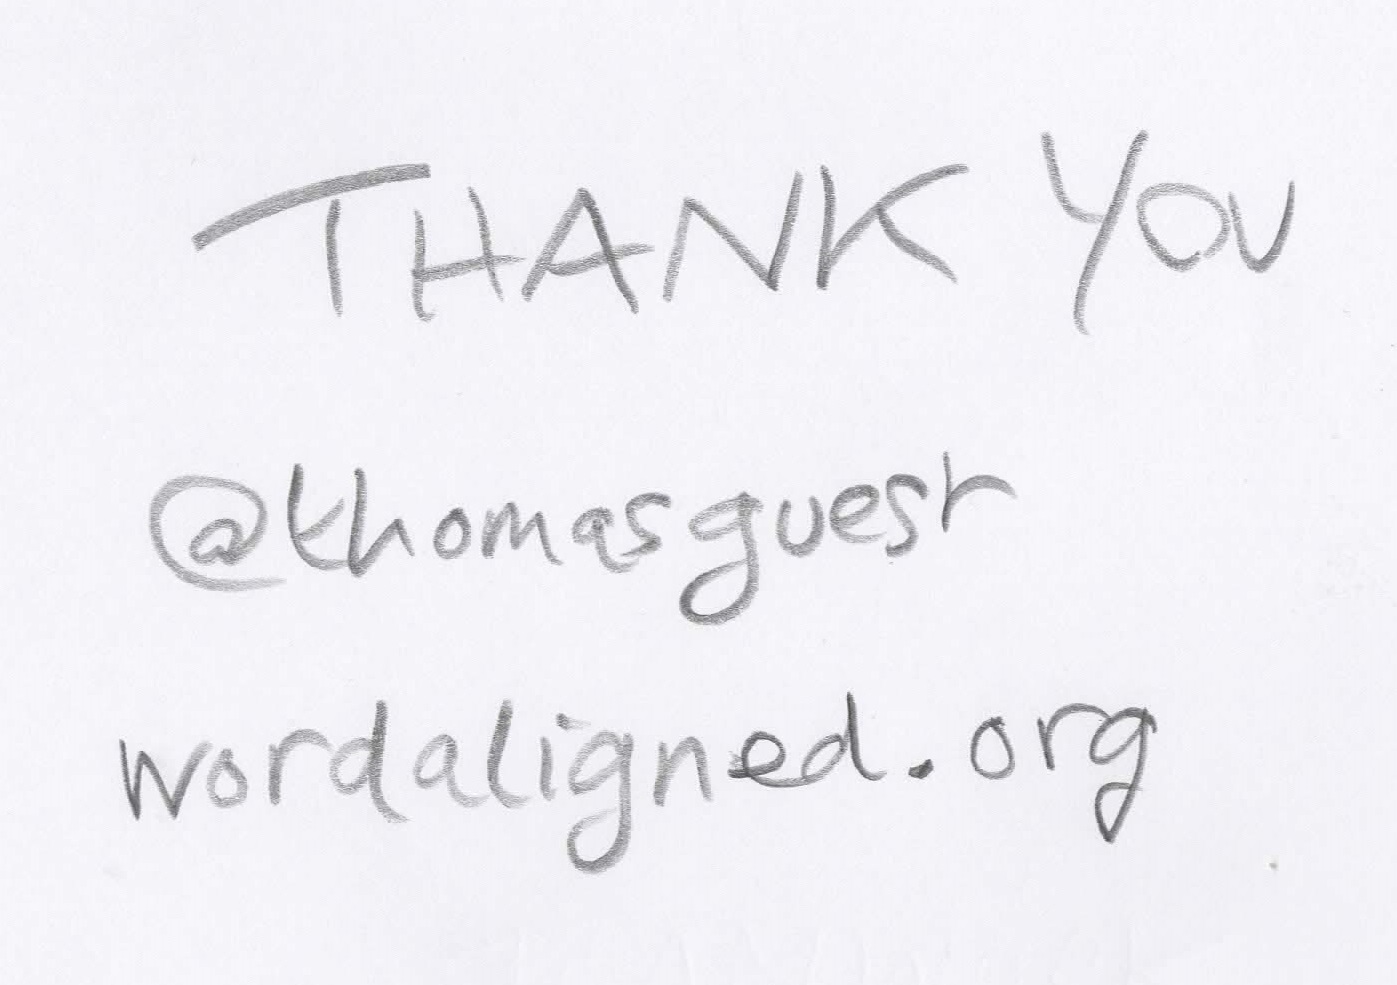 THANK YOU
@thomasguest
wordaligned.org